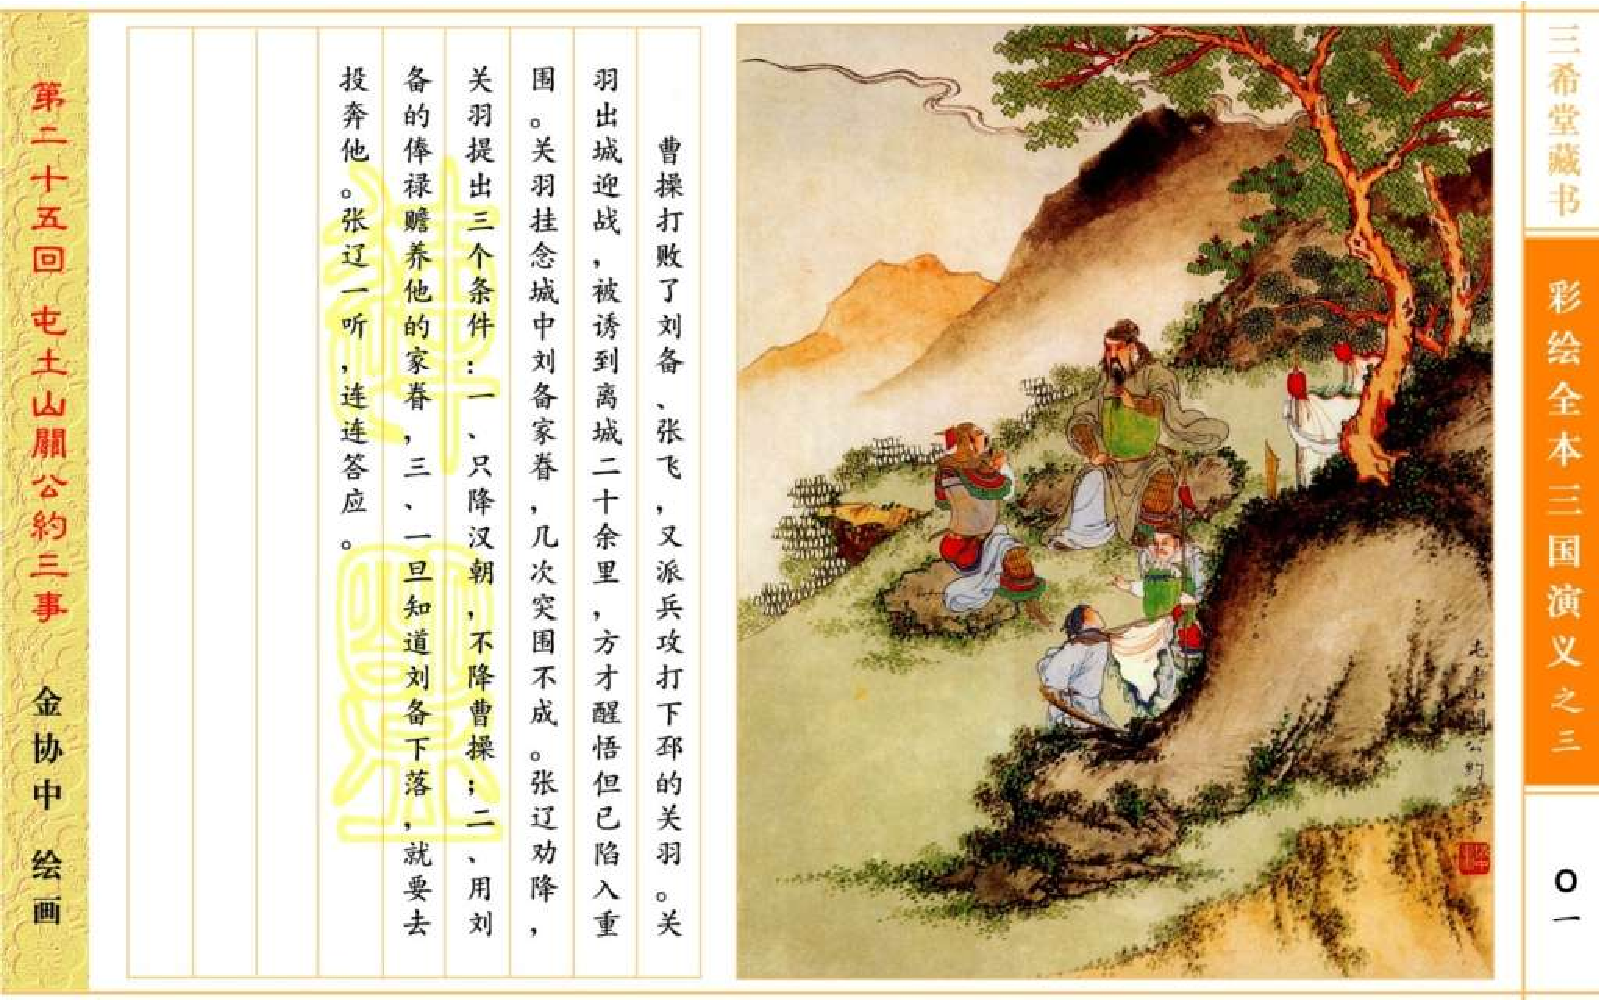 三希堂藏书
彩绘全本三国演义之三
〇一
屯土山关公约三事
曹操打败了刘备、张飞,又派兵攻打下邳的关羽。关
羽出城迎战,被诱到离城二十余里,方才醒悟但已陷入重
围。关羽挂念城中刘备家眷,几次突围不成。张辽劝降,
关羽提出三个条件:一、只降汉朝,不降曹操;二、用刘
备的俸禄赡养他的家眷,三、一旦知道刘备下落,就要去
投奔他。张辽一听,连连答应。
第二十五回 屯土山關公約三事
金协中 绘画